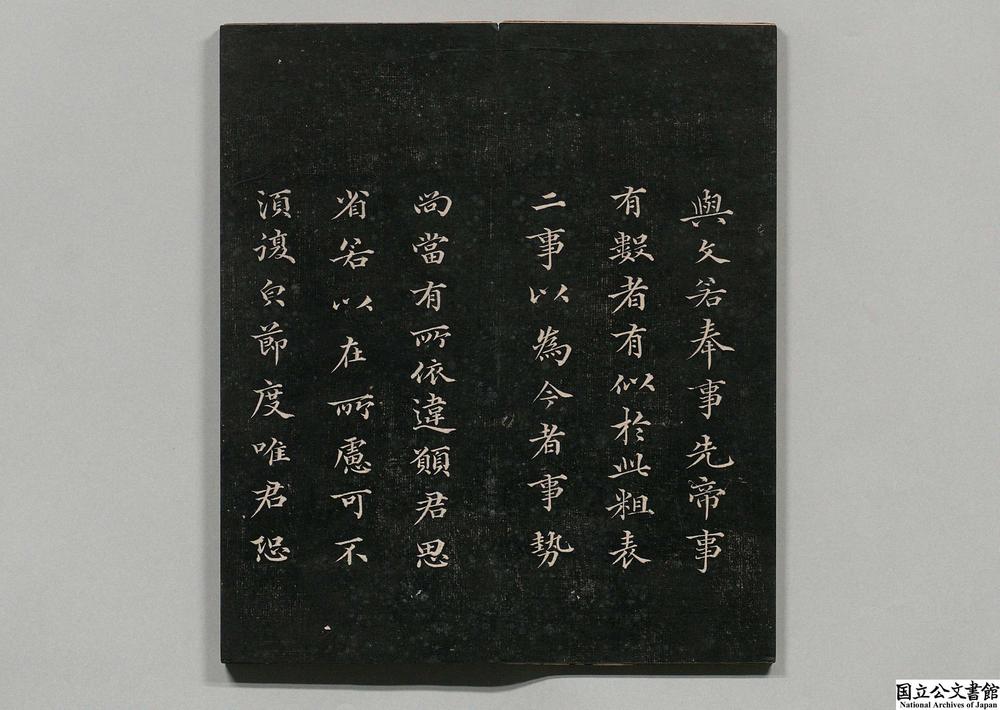 與文若奉事先帝事
有數者有似於此粗表
二事以為今者事勢
尚當有所依違願君思
省若以在所慮可不
須復白節度唯君恐
国立公文書館
National Archives of Japan